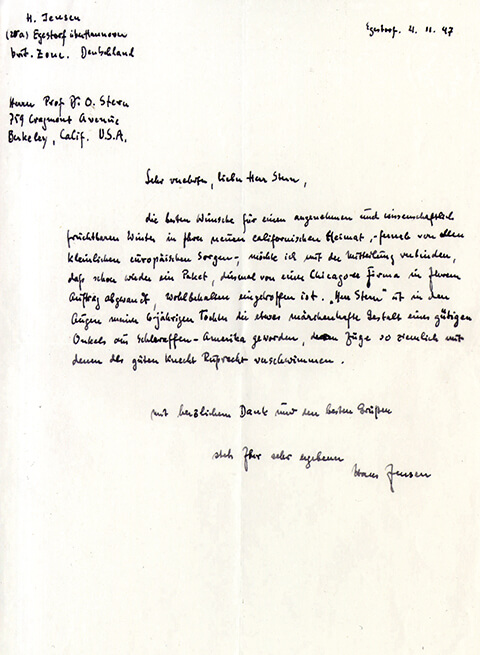 H. Jensen
(20a) Egestorf über Hannover
brit. Zone. Deutschland
Egestorf. 4. 11. 47
Herrn Prof. Dr. O. Stern
759 Cragmont Avenue
Berkeley, Calif. U.S.A.
Sehr verehrter, lieber Herr Stern,
die besten Wünsche für einen angenehmen und wissenschaftlich
fruchtbaren Winter in Ihrer neuen californischen Heimat, - fernab von allen
kleinlichen europäischen Sorgen -, möchte ich mit der Mitteilung verbinden,
daß schon wieder ein Paket, diesmal von einer Chicagoer Firma in Ihrem
Auftrag abgesandt, wohlbehalten eingetroffen ist. „Herr Stern" ist in den
Augen meiner 6-jährigen Tochter die etwas märchenhafte Gestalt eines gütigen
Onkels aus Schlaraffen-Amerika geworden, deren Züge so ziemlich mit
denen des guten Knecht Ruprecht verschwimmen.
mit herzlichem Dank und den besten Grüßen
stets Ihr sehr ergebener
Hans Jensen